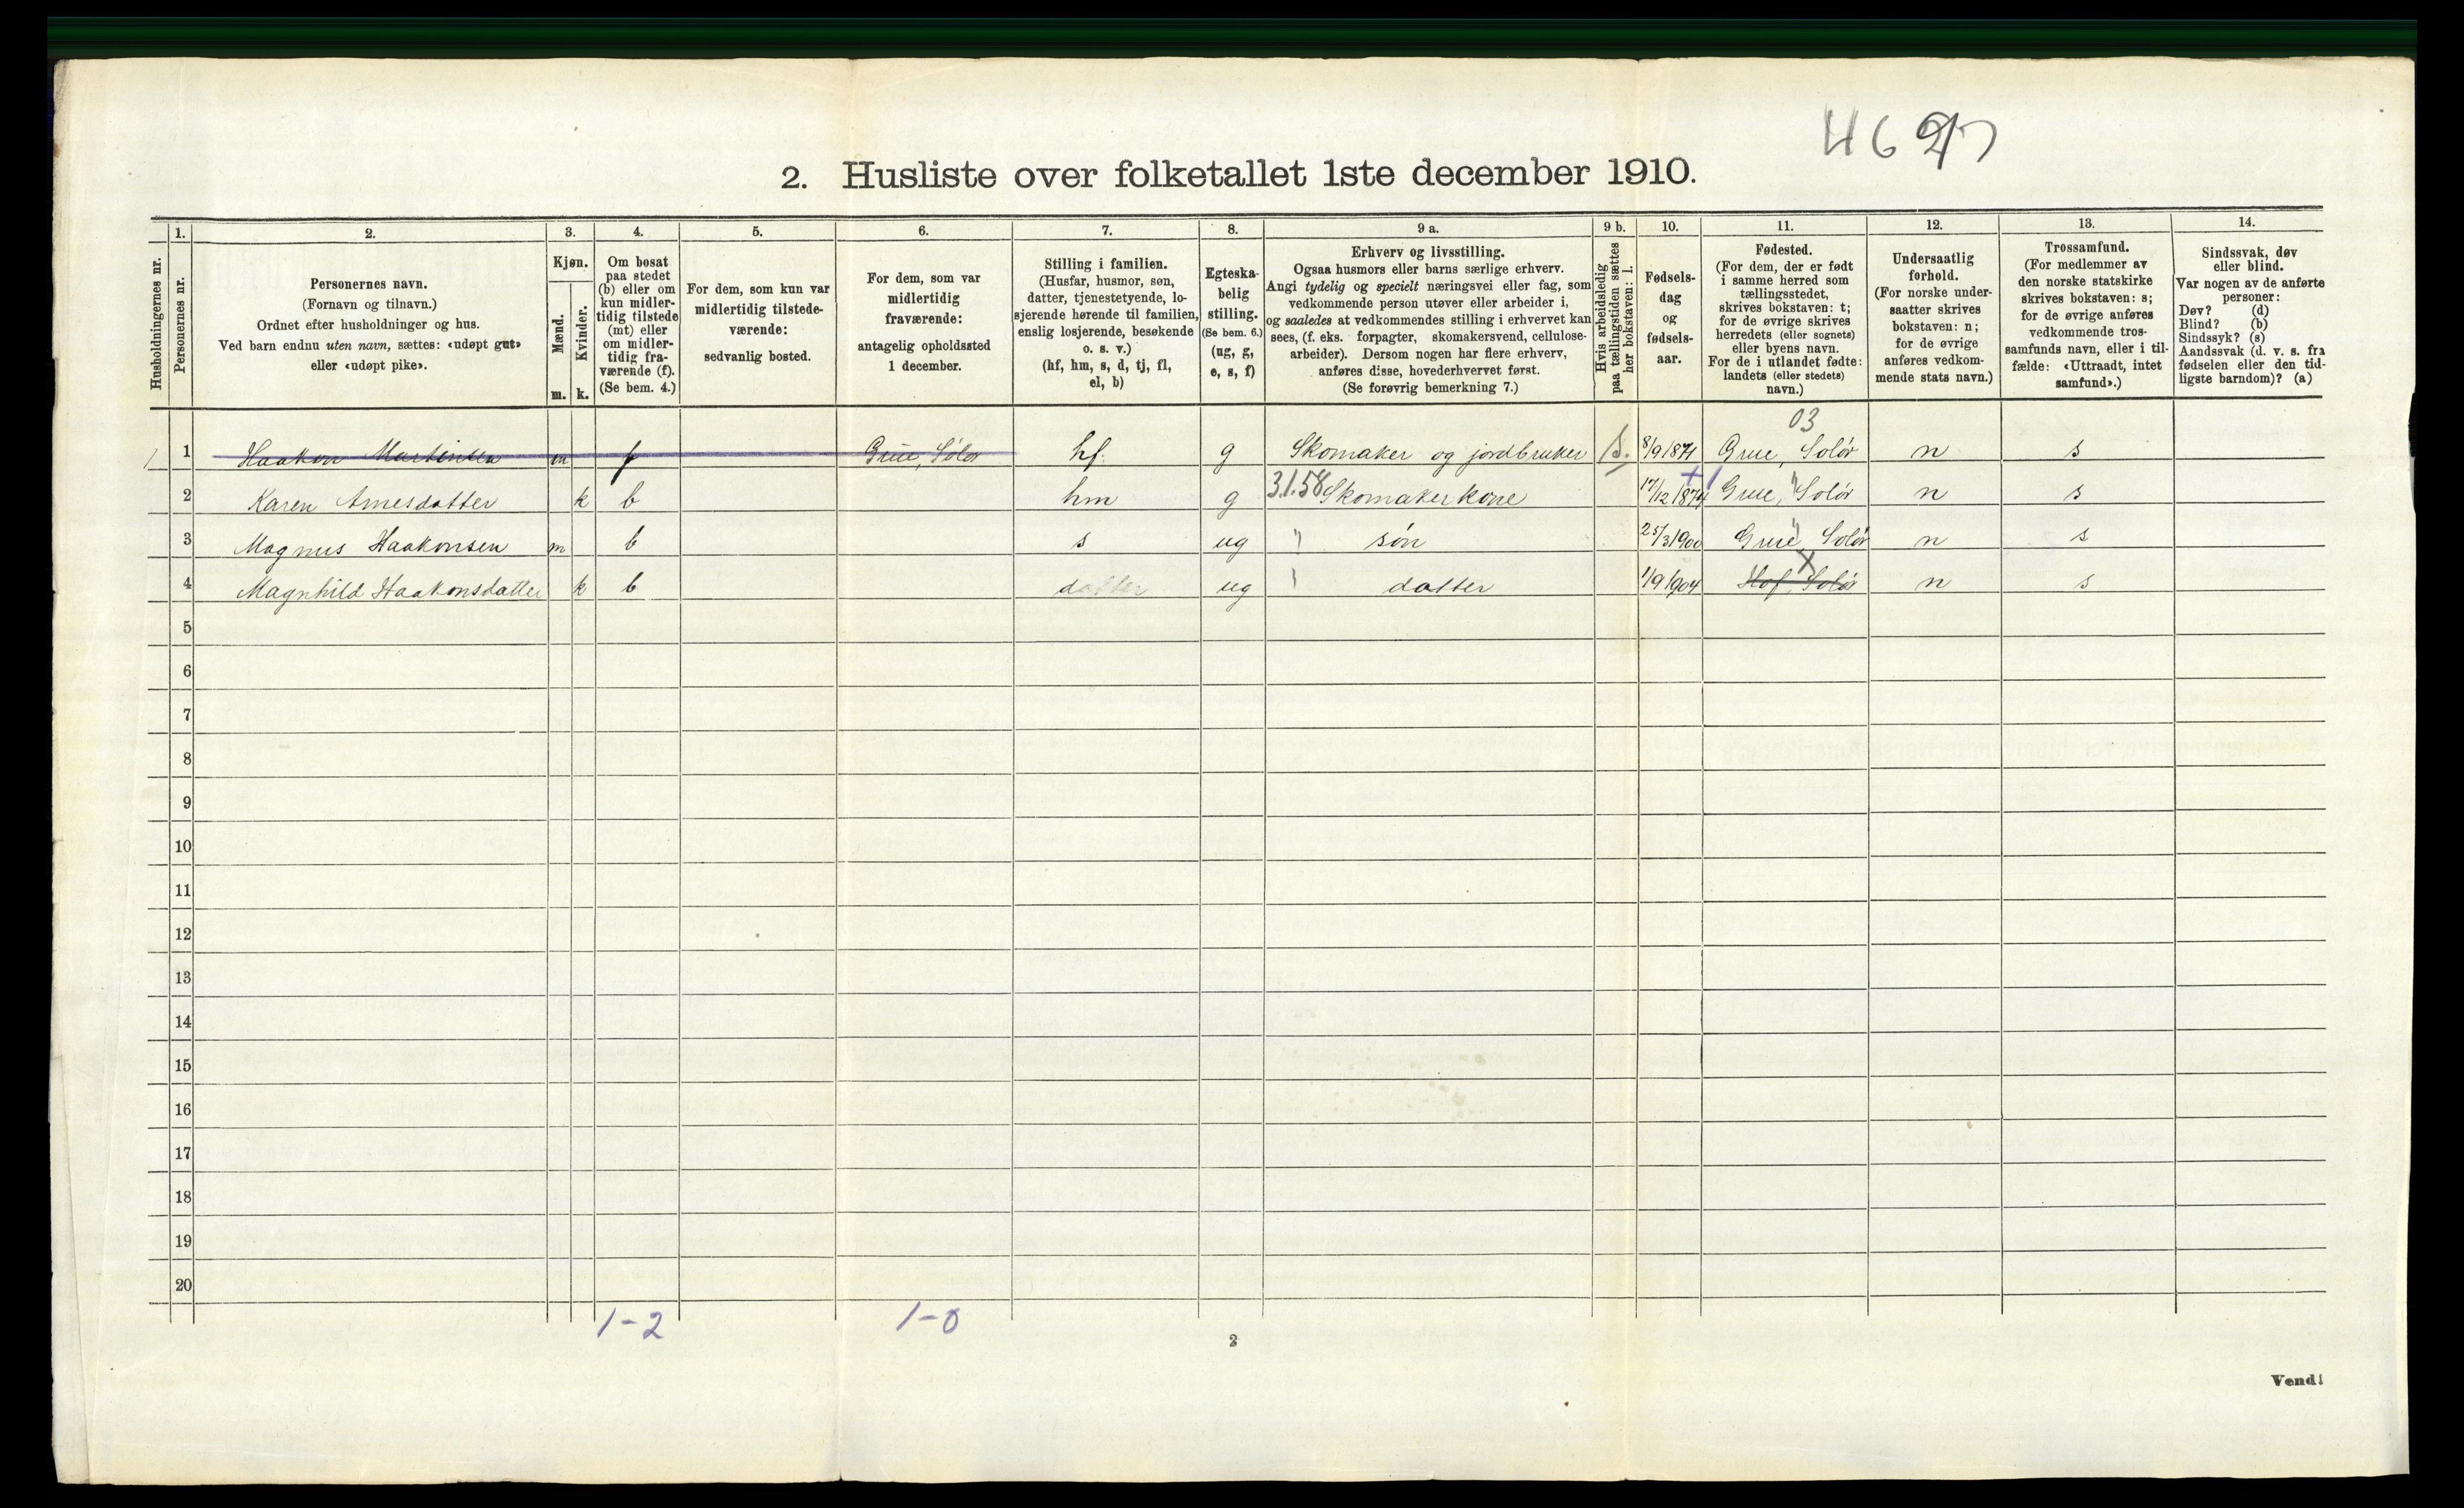 4627
2. Husliste over folketallet 1ste december 1910.
Husholdningernes nr.
1. Personernes nr.
2. Personernes navn.
(Fornavn og tilnavn.)
Ordnet efter husholdninger og hus.
Ved barn endnu uten navn, sættes: «udøpt gut»
eller «udøpt pike».
3. Kjøn.
Mænd. m.
Kvinder. k.
4. Om bosat
paa stedet
(b) eller om
kun midler-
tidig tilstede
(mt) eller
om midler-
tidig fra-
værende (f).
(Se bem. 4.)
5. For dem, som kun var
midlertidig tilstede-
værende:
sedvanlig bosted.
6. For dem, som var
midlertidig
fraværende:
antagelig opholdssted
1 december.
7. Stilling i familien.
(Husfar, husmor, søn,
datter, tjenestetyende, lo-
sjerende hørende til familien,
enslig losjerende, besøkende
o. s. v.)
(hf, hm, s, d, tj, fl,
el, b)
8. Egteska-
belig
stilling.
(Se bem. 6.)
(ug, g,
e, s, f)
9 a. Erhverv og livsstilling.
Ogsaa husmors eller barns særlige erhverv.
Angi tydelig og specielt næringsvei eller fag, som
vedkommende person utøver eller arbeider i,
og saaledes at vedkommendes stilling i erhvervet kan
sees, (f. eks. forpagter, skomakersvend, cellulose-
arbeider). Dersom nogen har flere erhverv,
anføres disse, hovederhvervet først.
(Se forøvrig bemerkning 7.)
9 b. Hvis arbeidsledig
paa tællingstiden sættes
her bokstaven: l.
10. Fødsels-
dag
og
fødsels-
aar.
11. Fødested.
(For dem, der er født
i samme herred som
tællingsstedet,
skrives bokstaven: t;
for de øvrige skrives
herredets (eller sognets)
eller byens navn.
For de i utlandet fødte:
landets (eller stedets)
navn.)
12. Undersaatlig
forhold.
(For norske under-
saatter skrives
bokstaven: n;
for de øvrige
anføres vedkom-
mende stats navn.)
13. Trossamfund.
(For medlemmer av
den norske statskirke
skrives bokstaven: s;
for de øvrige anføres
vedkommende tros-
samfunds navn, eller i til-
fælde: «Uttraadt, intet
samfund».)
14. Sindssvak, døv
eller blind.
Var nogen av de anførte
personer:
Døv? (d)
Blind? (b)
Sindssyk? (s)
Aandssvak (d. v. s. fra
fødselen eller den tid-
ligste barndom)? (a)
03
1 1 Haakon Martinsen m f Grue, Solør hf. g Skomaker og jordbruker 8/9 1871 Grue, Solør n s
2 Karen Arnesdatter k b hm g 3.1.58 Skomakerkone 17/12 1874 Grue, Solør n s
3 Magnus Haakonsen m b s ug " søn 25/3 1900 Grue, Solør n s
X
4 Magnhild Haakonsdatter k b datter ug " datter 1/9 1904 Hof, Solør n s
5
6
7
8
9
10
11
12
13
14
15
16
17
18
19
20
1-2 1-0
2
Vend!